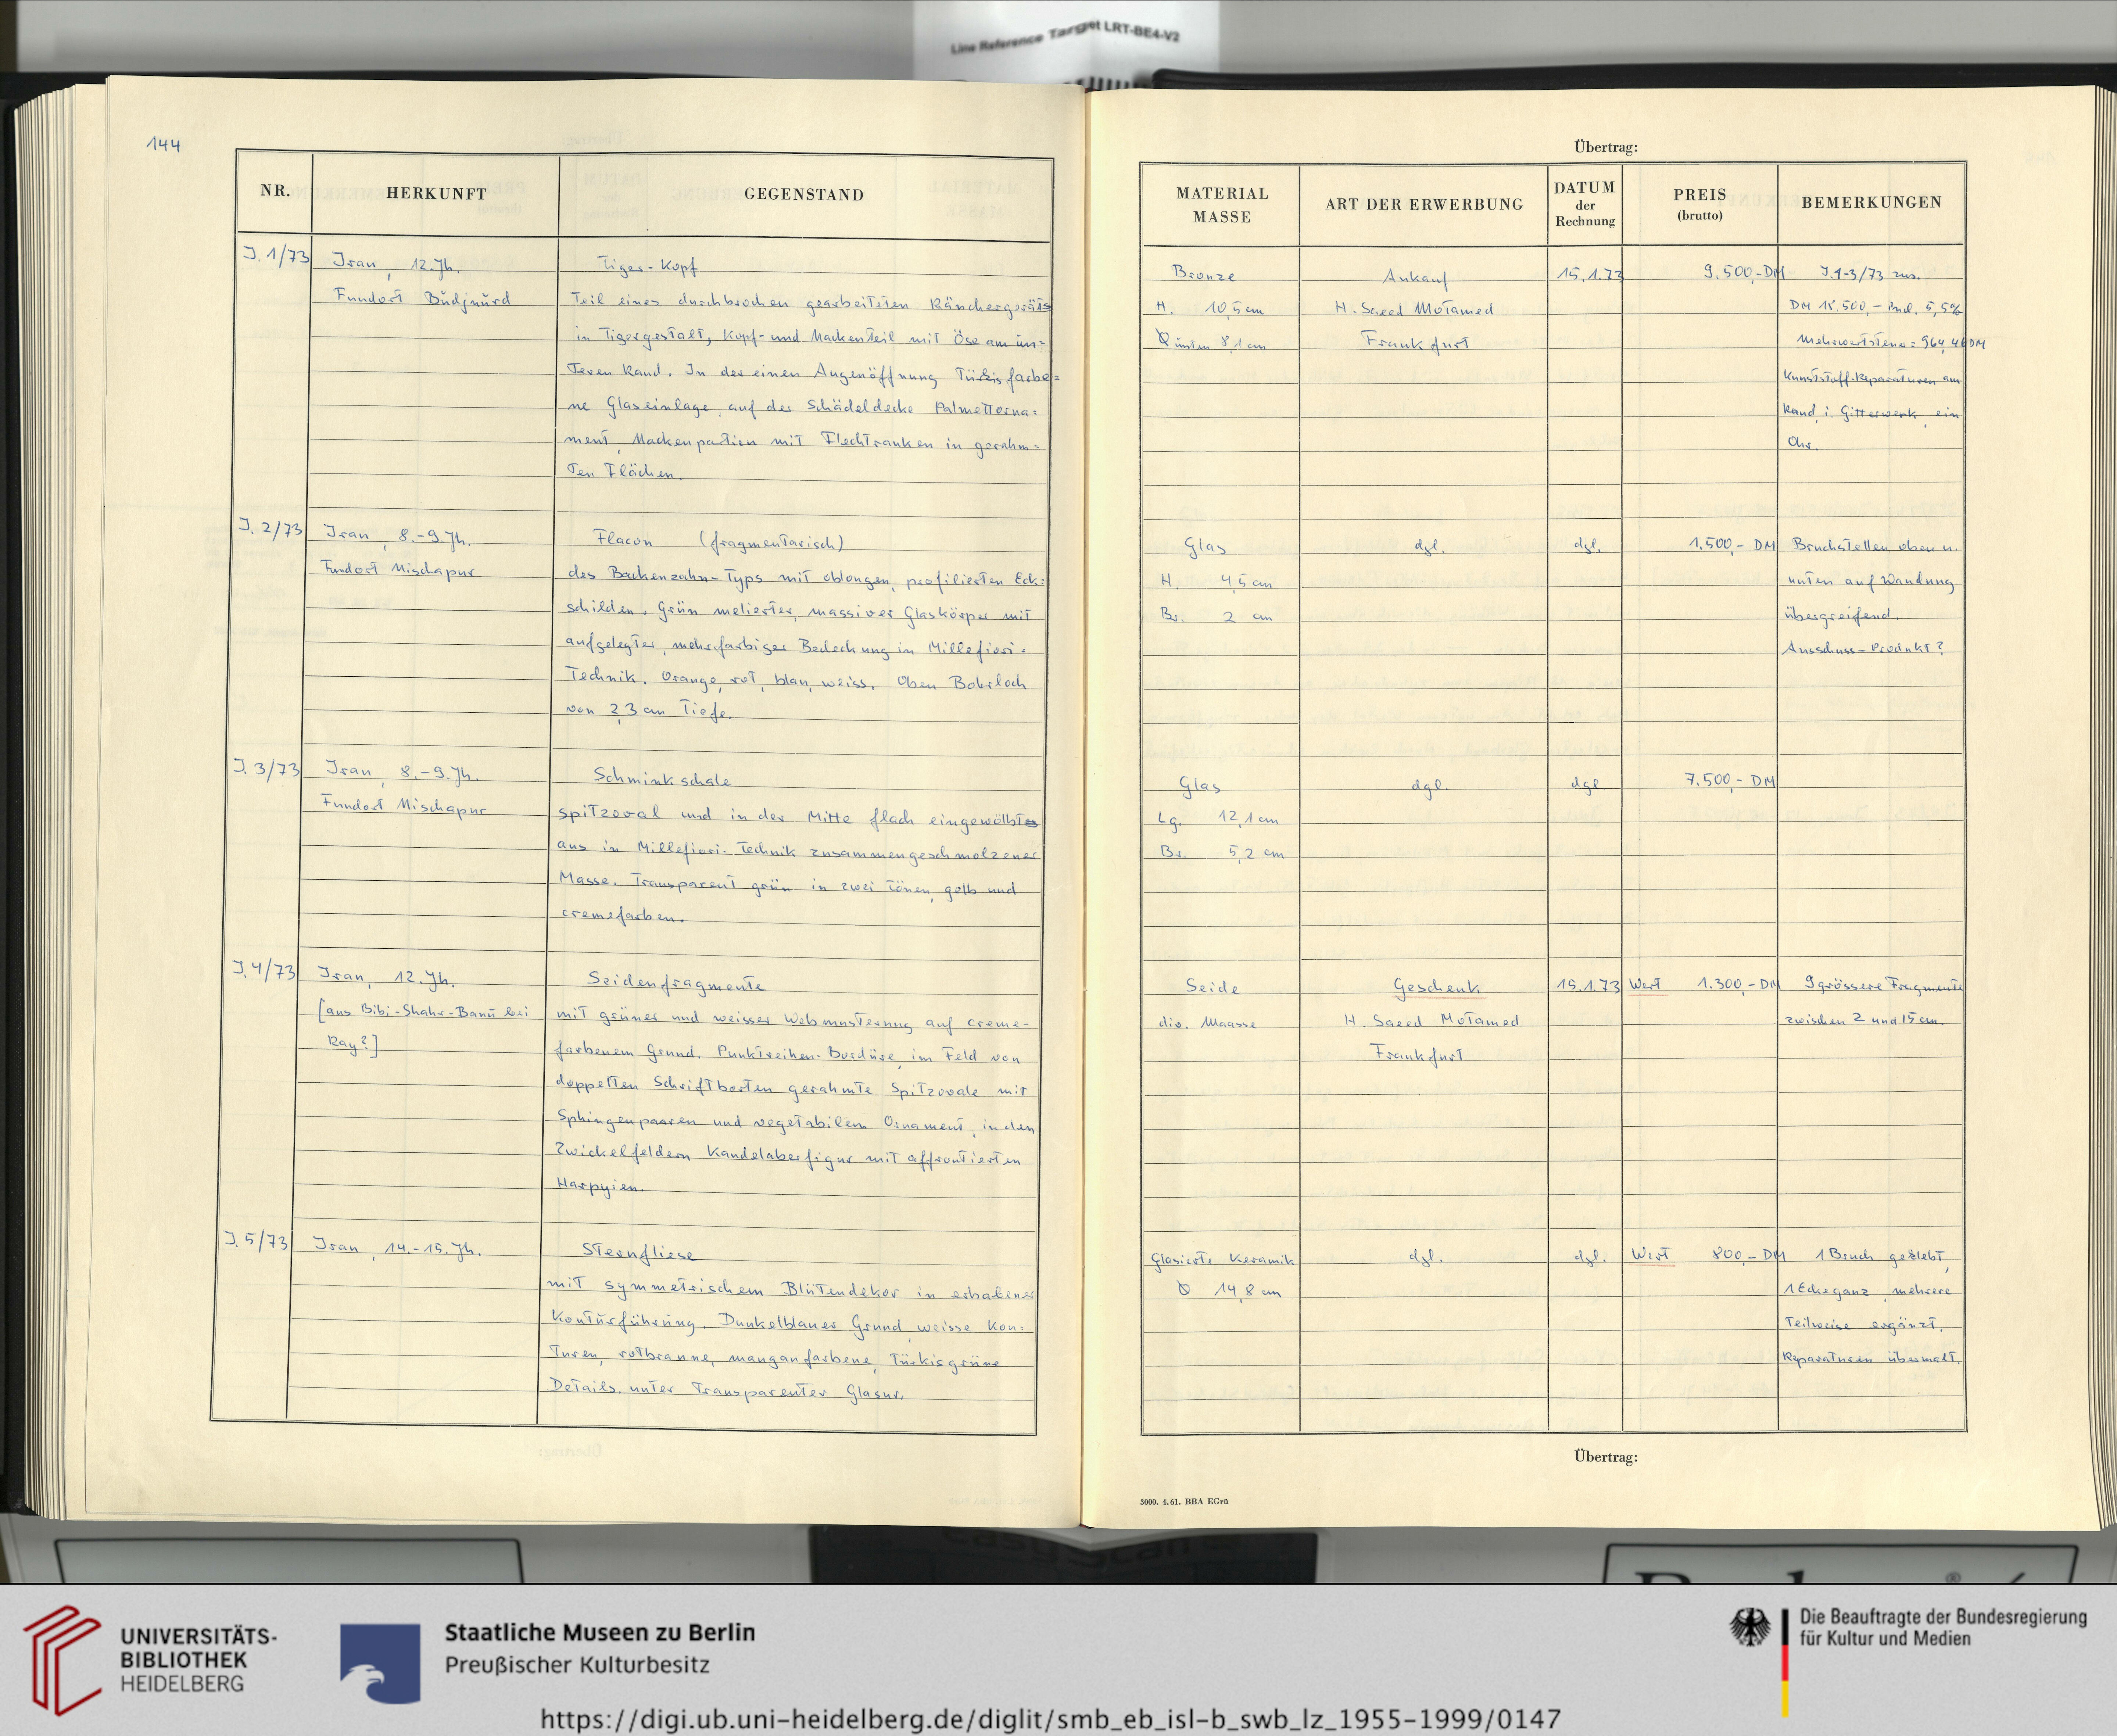 Line Reference Target LRT-BE4-V2
144
NR. HERKUNFT GEGENSTAND
J. 1/73 Iran, 12. Jh. Tiger-Kopf
Fundort Budjnurd Teil eines durchbrochen gearbeiteten Räuchergeräts
in Tigergestalt, Kopf- und Nackenteil mit Öse am un=
teren Rand. In der einen Augenöffnung Türkisfarbe=
ne Glaseinlage, auf der Schädeldecke Palmettorna=
ment, Nackenpartien mit Flechtranken in gerahm=
ten Flächen.
J. 2/73 Iran, 8.-9. Jh. Flacon (fragmentarisch)
Fundort Nischapur des Backenzahn-Typs mit oblongen, profilierten Eck=
schilden. Grün melierter, massiver Glaskörper mit
aufgelegter, mehrfarbiger Bedeckung in Millefiori=
Technik. Orange, rot, blau, weiss. Oben Bohrloch
von 2,3 cm Tiefe.
J. 3/73 Iran, 8.-9. Jh. Schminkschale
Fundort Nischapur spitzoval und in der Mitte flach eingewölbt
aus in Millefiori-Technik zusammengeschmolzener
Masse. Transparent grün in zwei Tönen, gelb und
cremefarben.
J. 4/73 Iran, 12. Jh. Seidenfragmente
[aus Bibi-Shahr-Banu bei mit grüner und weisser Webmusterung auf creme-
Ray?] farbenem Grund. Punktreihen-Bordüre, im Feld von
doppelten Schriftborten gerahmte Spitzovale mit
Sphingenpaaren und vegetabilem Ornament, in den
Zwickelfeldern Kandelaberfigur mit affrontierten
Harpyien.
J. 5/73 Iran, 14.-15. Jh. Sternfliese
mit symmetrischem Blütendekor in erhabener
Konturführung. Dunkelblauer Grund, weisse Kon=
turen, rotbraune, manganfarbene, Türkisgrüne
Details unter Transparenter Glasur.
Übertrag:
MATERIAL MASSE ART DER ERWERBUNG DATUM der Rechnung PREIS (brutto) BEMERKUNGEN
Bronze Ankauf 15.1.73 9.500,- DM J. 1-3/73 zus.
H. 10,5 cm H. Saeed Motamed DM 18.500,- incl. 5,5%
Ø unten 8,1 cm Frankfurt Mehrwertsteuer = 964,46 DM
Kunststoff-Reparaturen am
Rand i. Gitterwerk, ein
Ohr.
Glas dgl. dgl. 1.500,- DM Bruchstellen oben u.
H. 4,5 cm unten auf Wandung
Br. 2 cm übergreifend.
Ausschuss-Produkt?
Glas dgl. dgl 7.500,- DM
Lg. 12,1 cm
Br. 5,2 cm
Seide Geschenk 15.1.73 Wert 1.300,- DM 9 grössere Fragmente
div. Maasse H. Saeed Motamed zwischen 2 und 15 cm.
Frankfurt
Glasierte Keramik dgl. dgl. Wert 800,- DM 1 Bruch geklebt,
Ø 14,8 cm 1 Ecke ganz, mehrere
Teilweise ergänzt,
Reparaturen übermalt.
Übertrag:
3000. 4.61. BBA EGrü
UNIVERSITÄTS-
BIBLIOTHEK
HEIDELBERG
Staatliche Museen zu Berlin
Preußischer Kulturbesitz
Die Beauftragte der Bundesregierung
für Kultur und Medien
https://digi.ub.uni-heidelberg.de/diglit/smb_eb_isl-b_swb_lz_1955-1999/0147